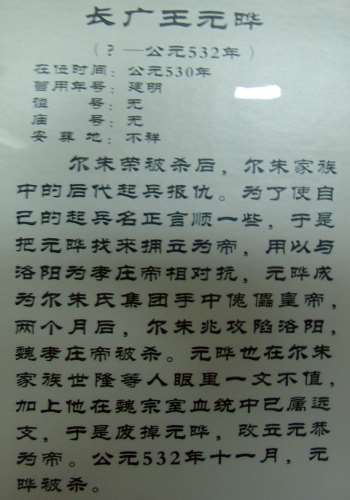 长广王元晔
(？—公元532年)
在位时间：公元530年
曾用年号：建明
谥　　号：无
庙　　号：无
安 葬 地：不祥
尔朱荣被杀后，尔朱家族
中的后代起兵报仇。为了使自
己的起兵名正言顺一些，于是
把元晔找来拥立为帝，用以与
洛阳为孝庄帝相对抗，元晔成
为尔朱氏集团手中傀儡皇帝，
两个月后，尔朱兆攻陷洛阳，
魏孝庄帝被杀。元晔也在尔朱
家族世隆等人眼里一文不值，
加上他在魏宗室血统中已属远
支，于是废掉元晔，改立元恭
为帝。公元532年十一月，元
晔被杀。